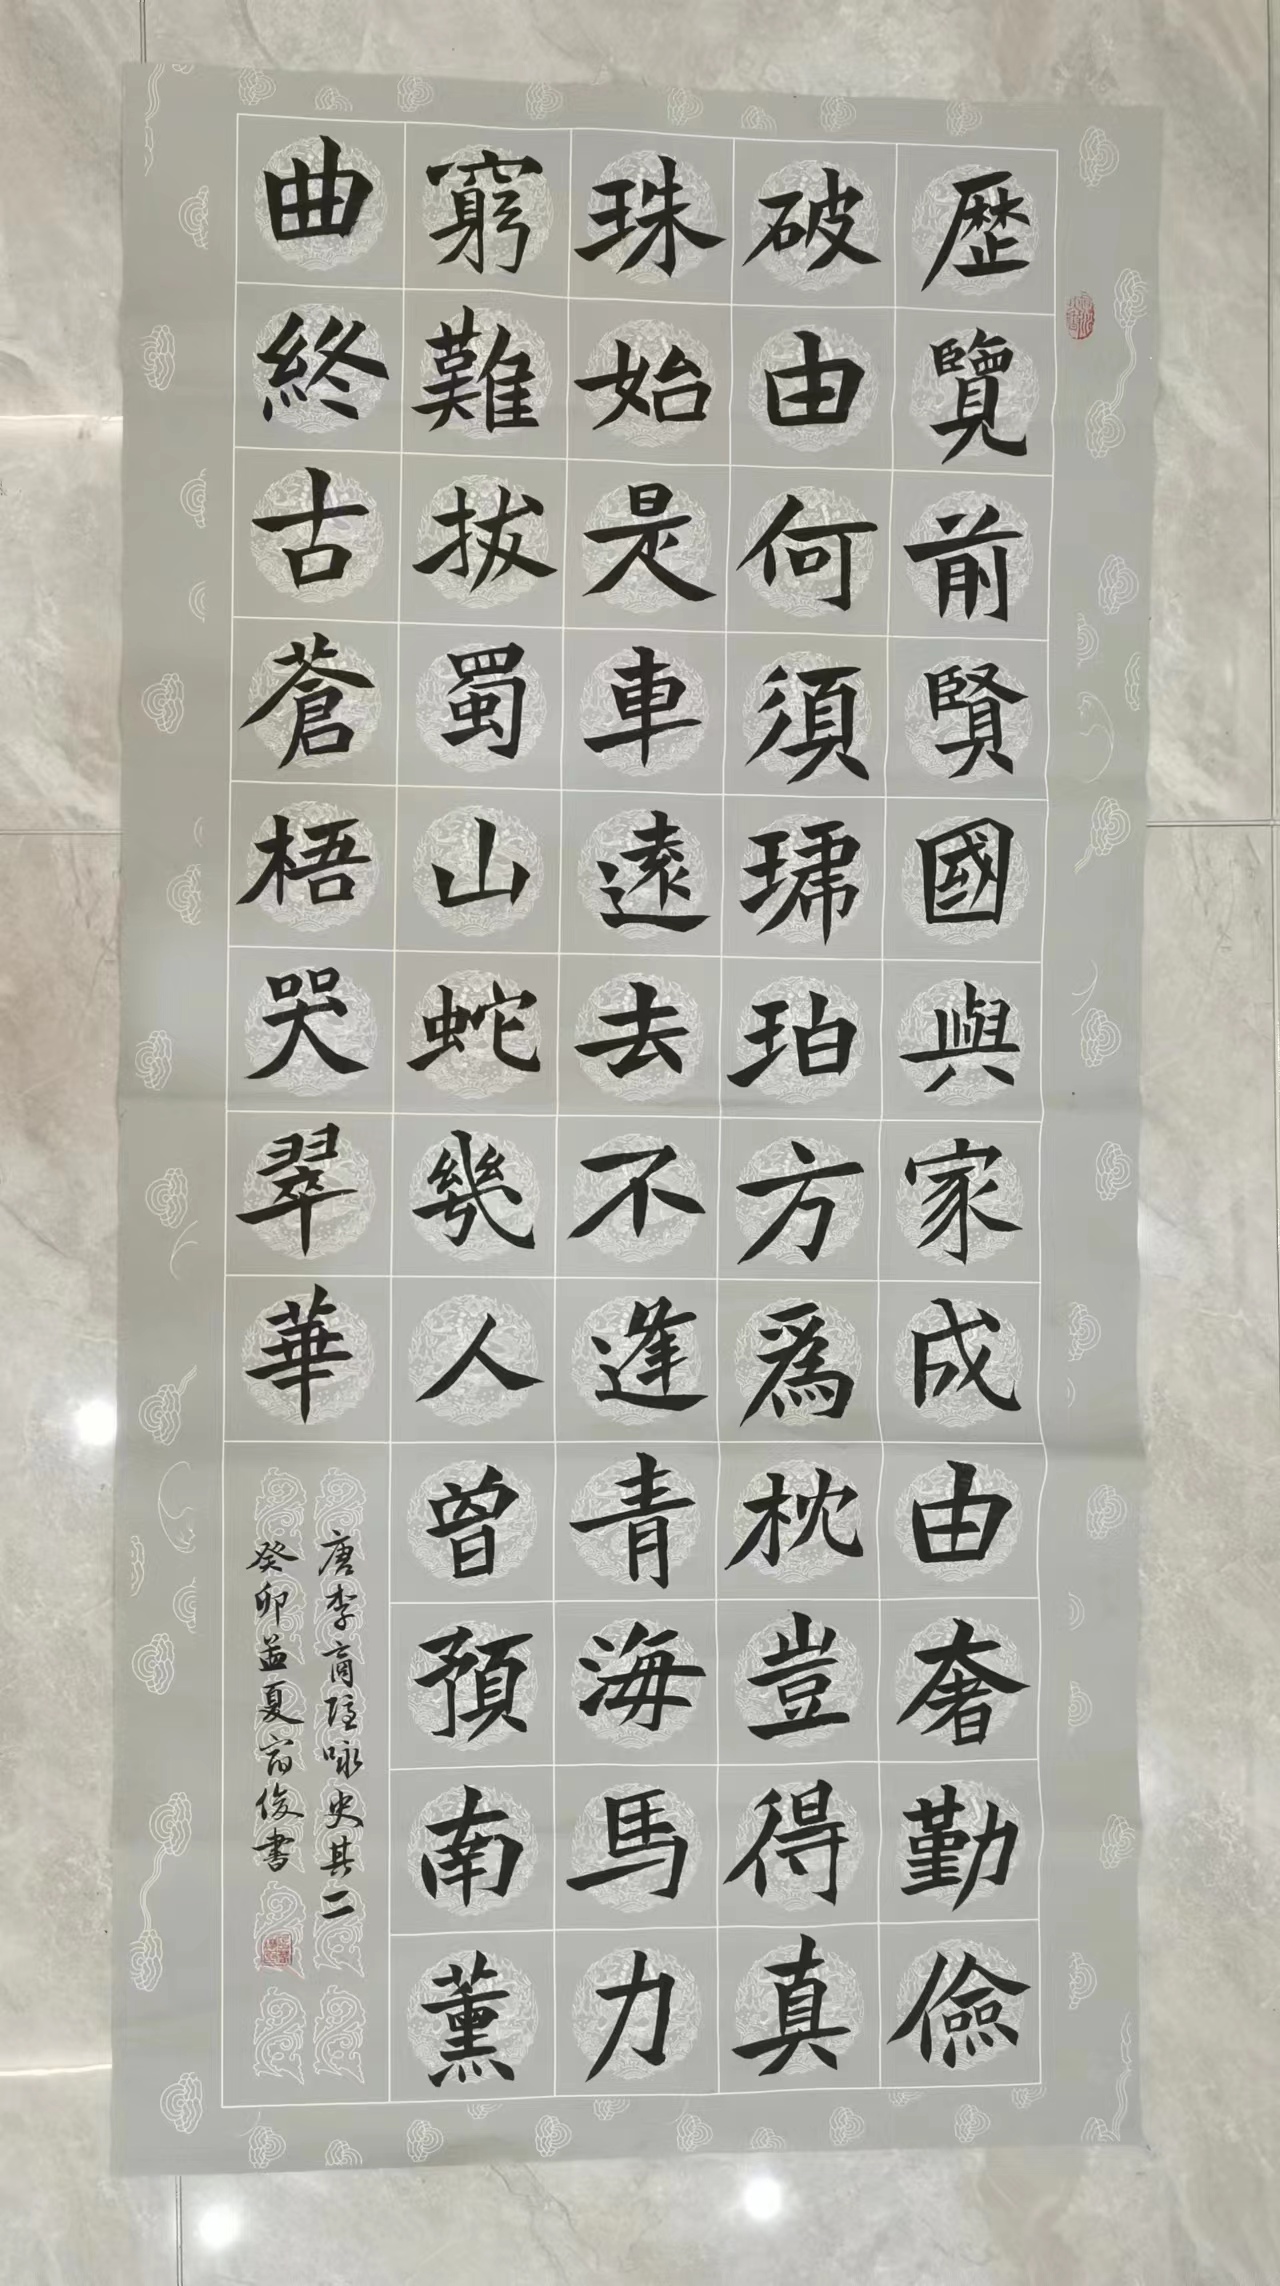 歷覽前賢國與家成由奢勤儉
破由何須琥珀方為枕豈得真
珠始是車遠去不逢青海馬力
窮難拔蜀山蛇幾人曾預南薰
曲終古蒼梧哭翠華
唐李商隱咏史其二
癸卯孟夏
俊書